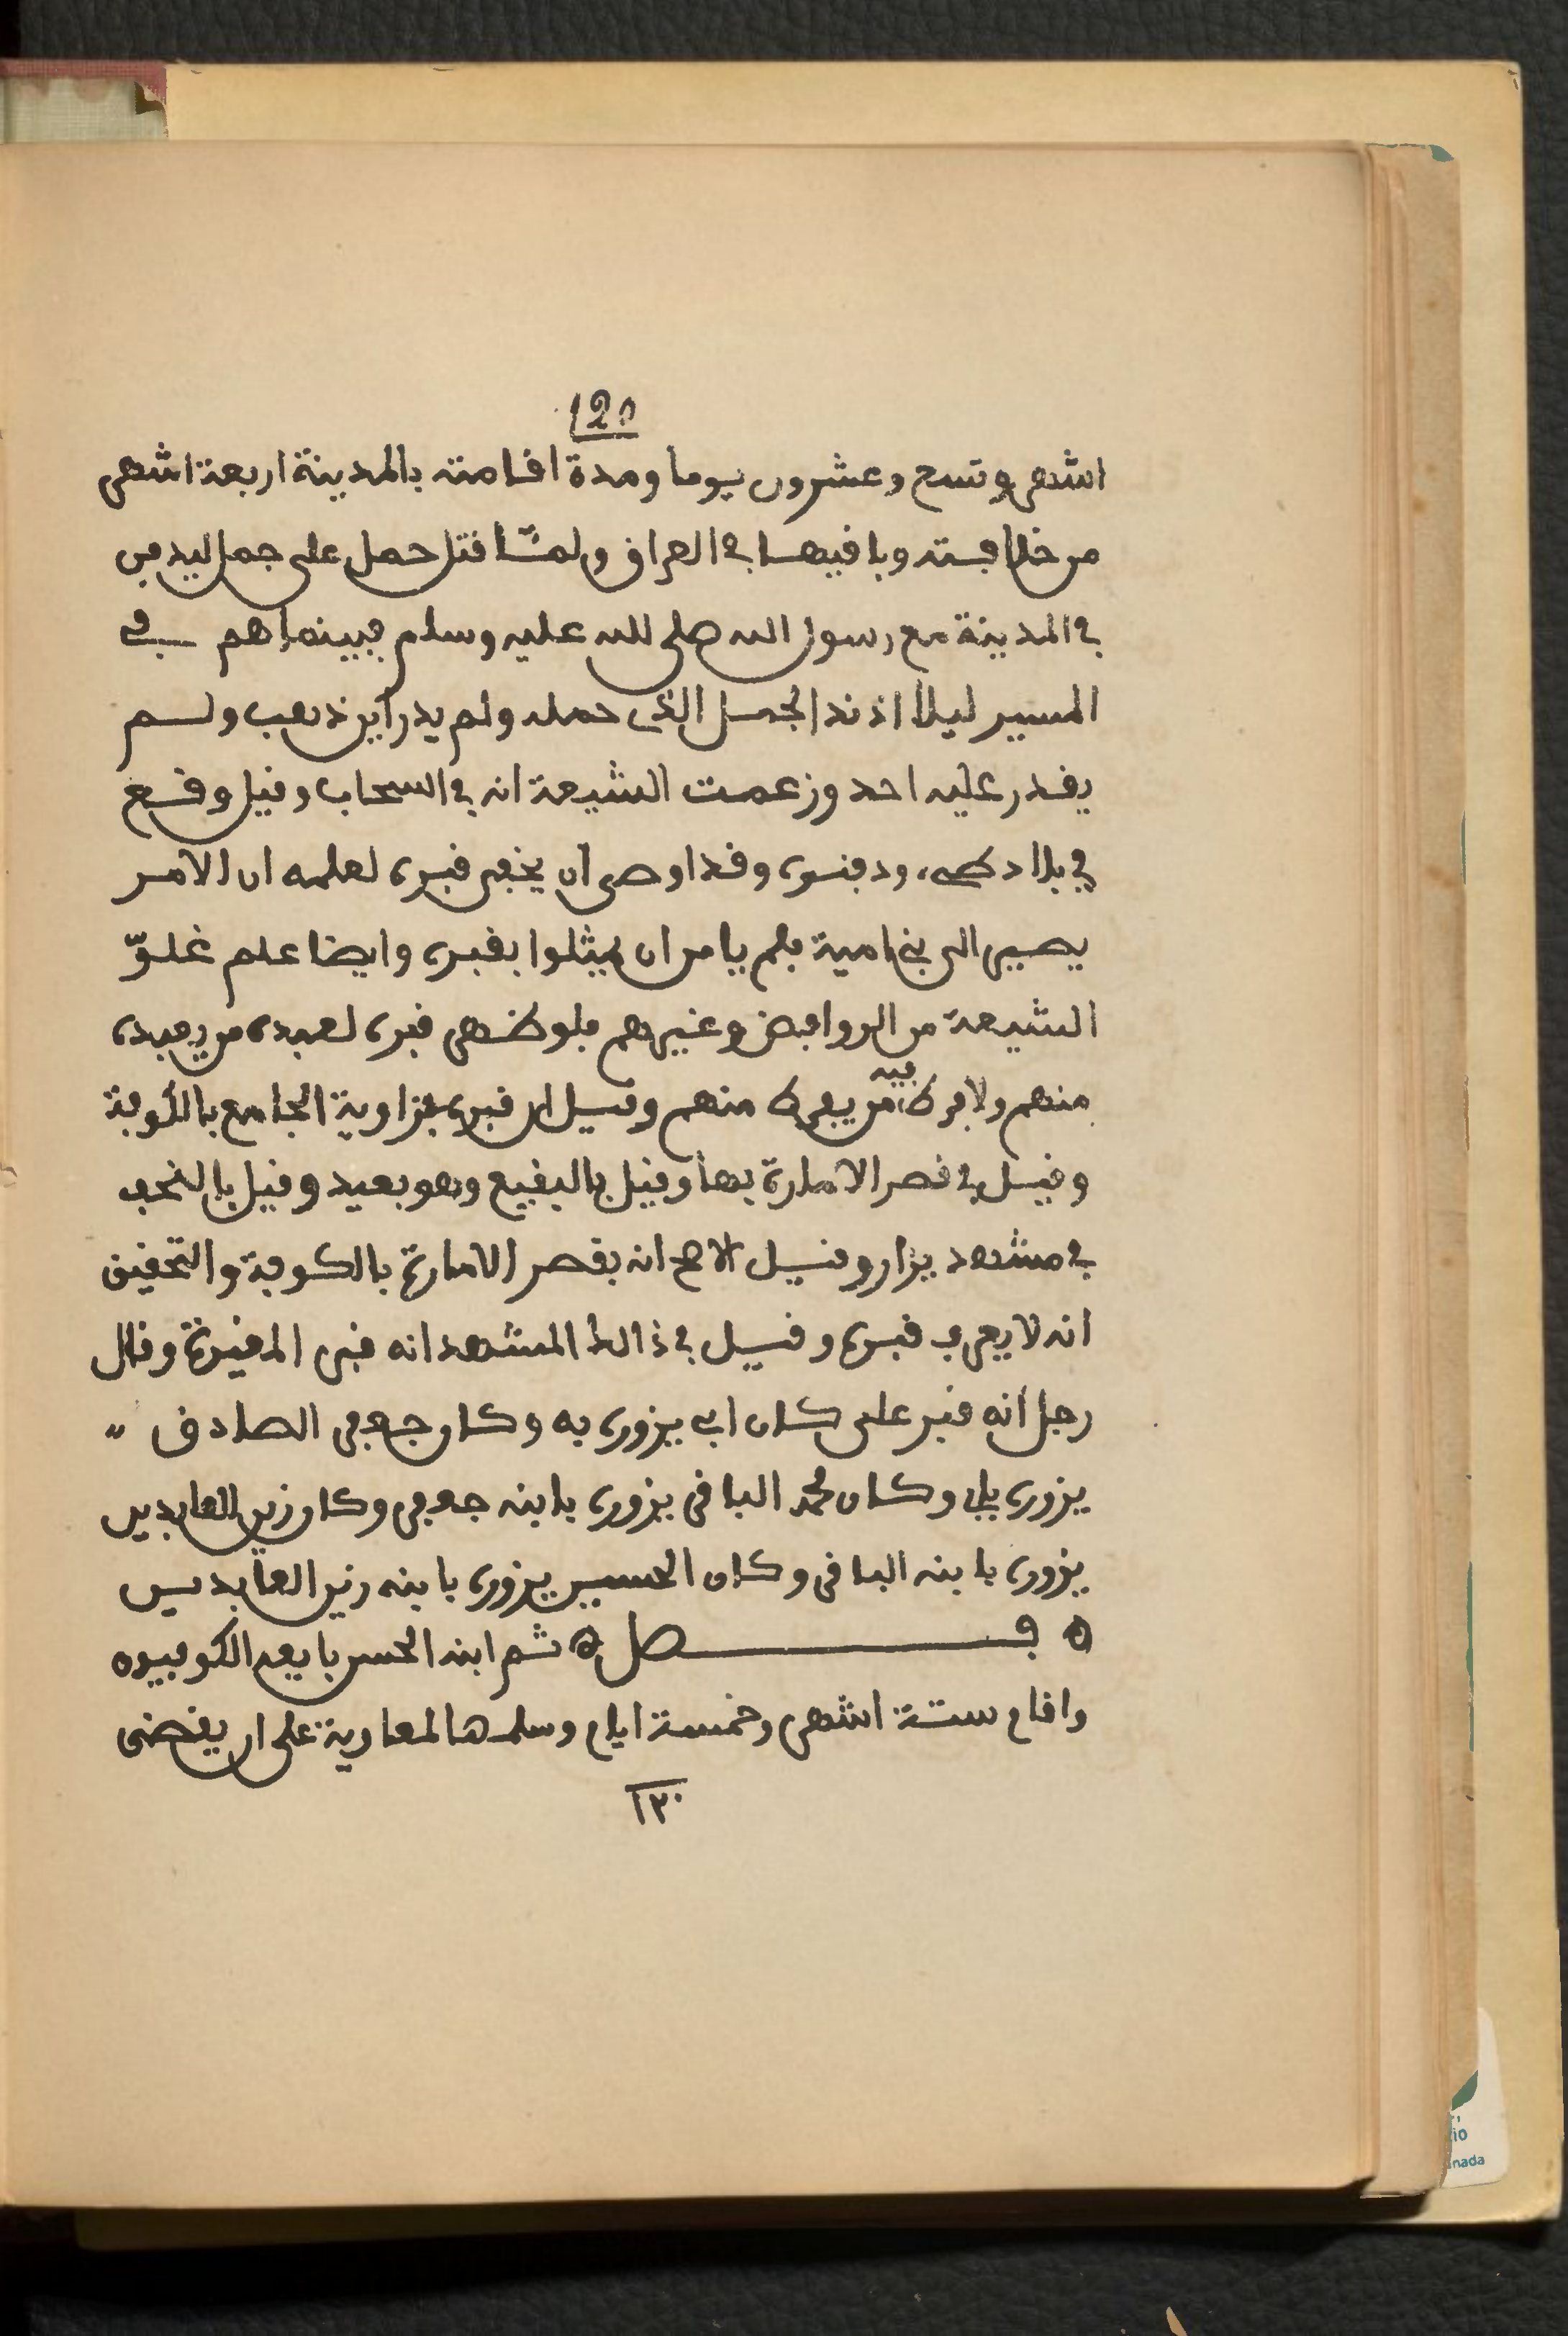 120
اشهر وتسع وعشرون يوما ومدة اقامته بالمدينة اربعة اشهر
من خلافته وباقيها في العراق ولمّا قتل حمل على جمل ليدفن
في المدينة مع رسول الله صلى الله عليه وسلم فبينما هم في
المسير ليلا اذ ند الجمل الذى حمله ولم يدر اين ذهب ولم
يقدر عليه احد وزعمت الشيعة انه في السحاب وقيل وقع
في بلاد طىء ودفنوه وقد اوصى ان يخفى قبره لعلمه ان الامر
يصير الى بني امية فلم يامن ان يمثلوا بقبره وايضا علم غلوّ
الشيعة من الروافض وغيرهم فلو ظهر قبره لعبده من يعبده
منهم ولافرط فيه من يفرط منهم وقيل ان قبره بزاوية الجامع بالكوفة
وقيل في قصر الامارة بها وقيل بالبقيع وهو بعيد وقيل بالنجف
في مشهد يزار وقيل الاصح انه بقصر الامارة بالكوفة والتحقيق
انه لا يعرف قبره وقيل في ذالك المشهد انه قبر المغيرة وقال
رجل انه قبر على كان ابى يزوره به وكان جعفر الصادق "
يزوره بابى وكان محمد الباقر يزوره بابنه جعفر وكان زين العابدين
يزوره بابنه الباقر وكان الحسين يزوره بابنه زين العابدين
ه فصل ه ثم ابنه الحسن بايعه الكوفيون
واقام ستة اشهر وخمسة ايام وسلمها لمعاوية على ان يقضى
١٢٠
io
nada